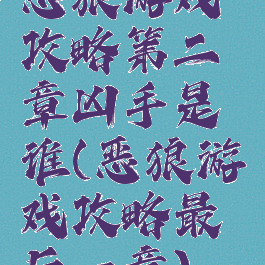 恶狼游戏
攻略第二
章凶手是
谁(恶狼游
戏攻略最
后一章)